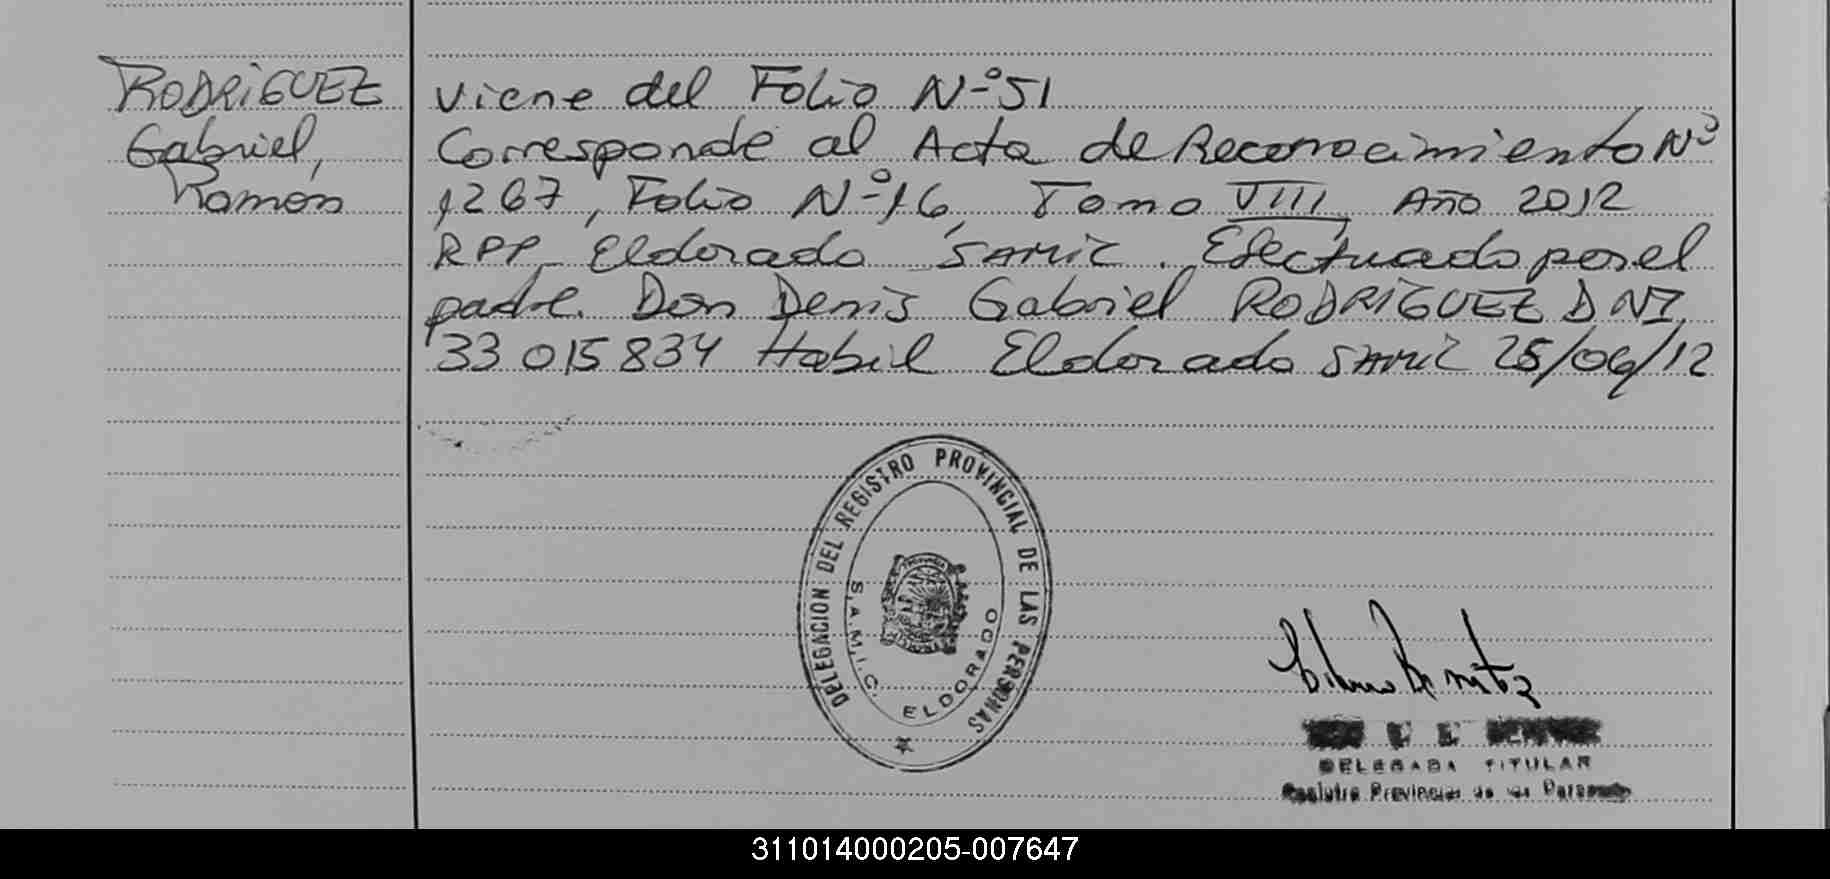 RODRIGUEZ
Gabriel,
Ramón
Viene del Folio Nº 51
Corresponde al Acta de Reconocimiento Nº
1267, Folio Nº 16, Tomo VIII, Año 2012
RPP Eldorado SAMIC. Efectuado por el
padre. Don Denis Gabriel RODRIGUEZ DNI
33 015 834 Habil Eldorado SAMIC 25/06/12
DELEGACION DEL REGISTRO PROVINCIAL DE LAS PERSONAS
S.A.M.I.C. ELDORADO
DELEGADA TITULAR
Registro Provincial de las Personas
311014000205-007647